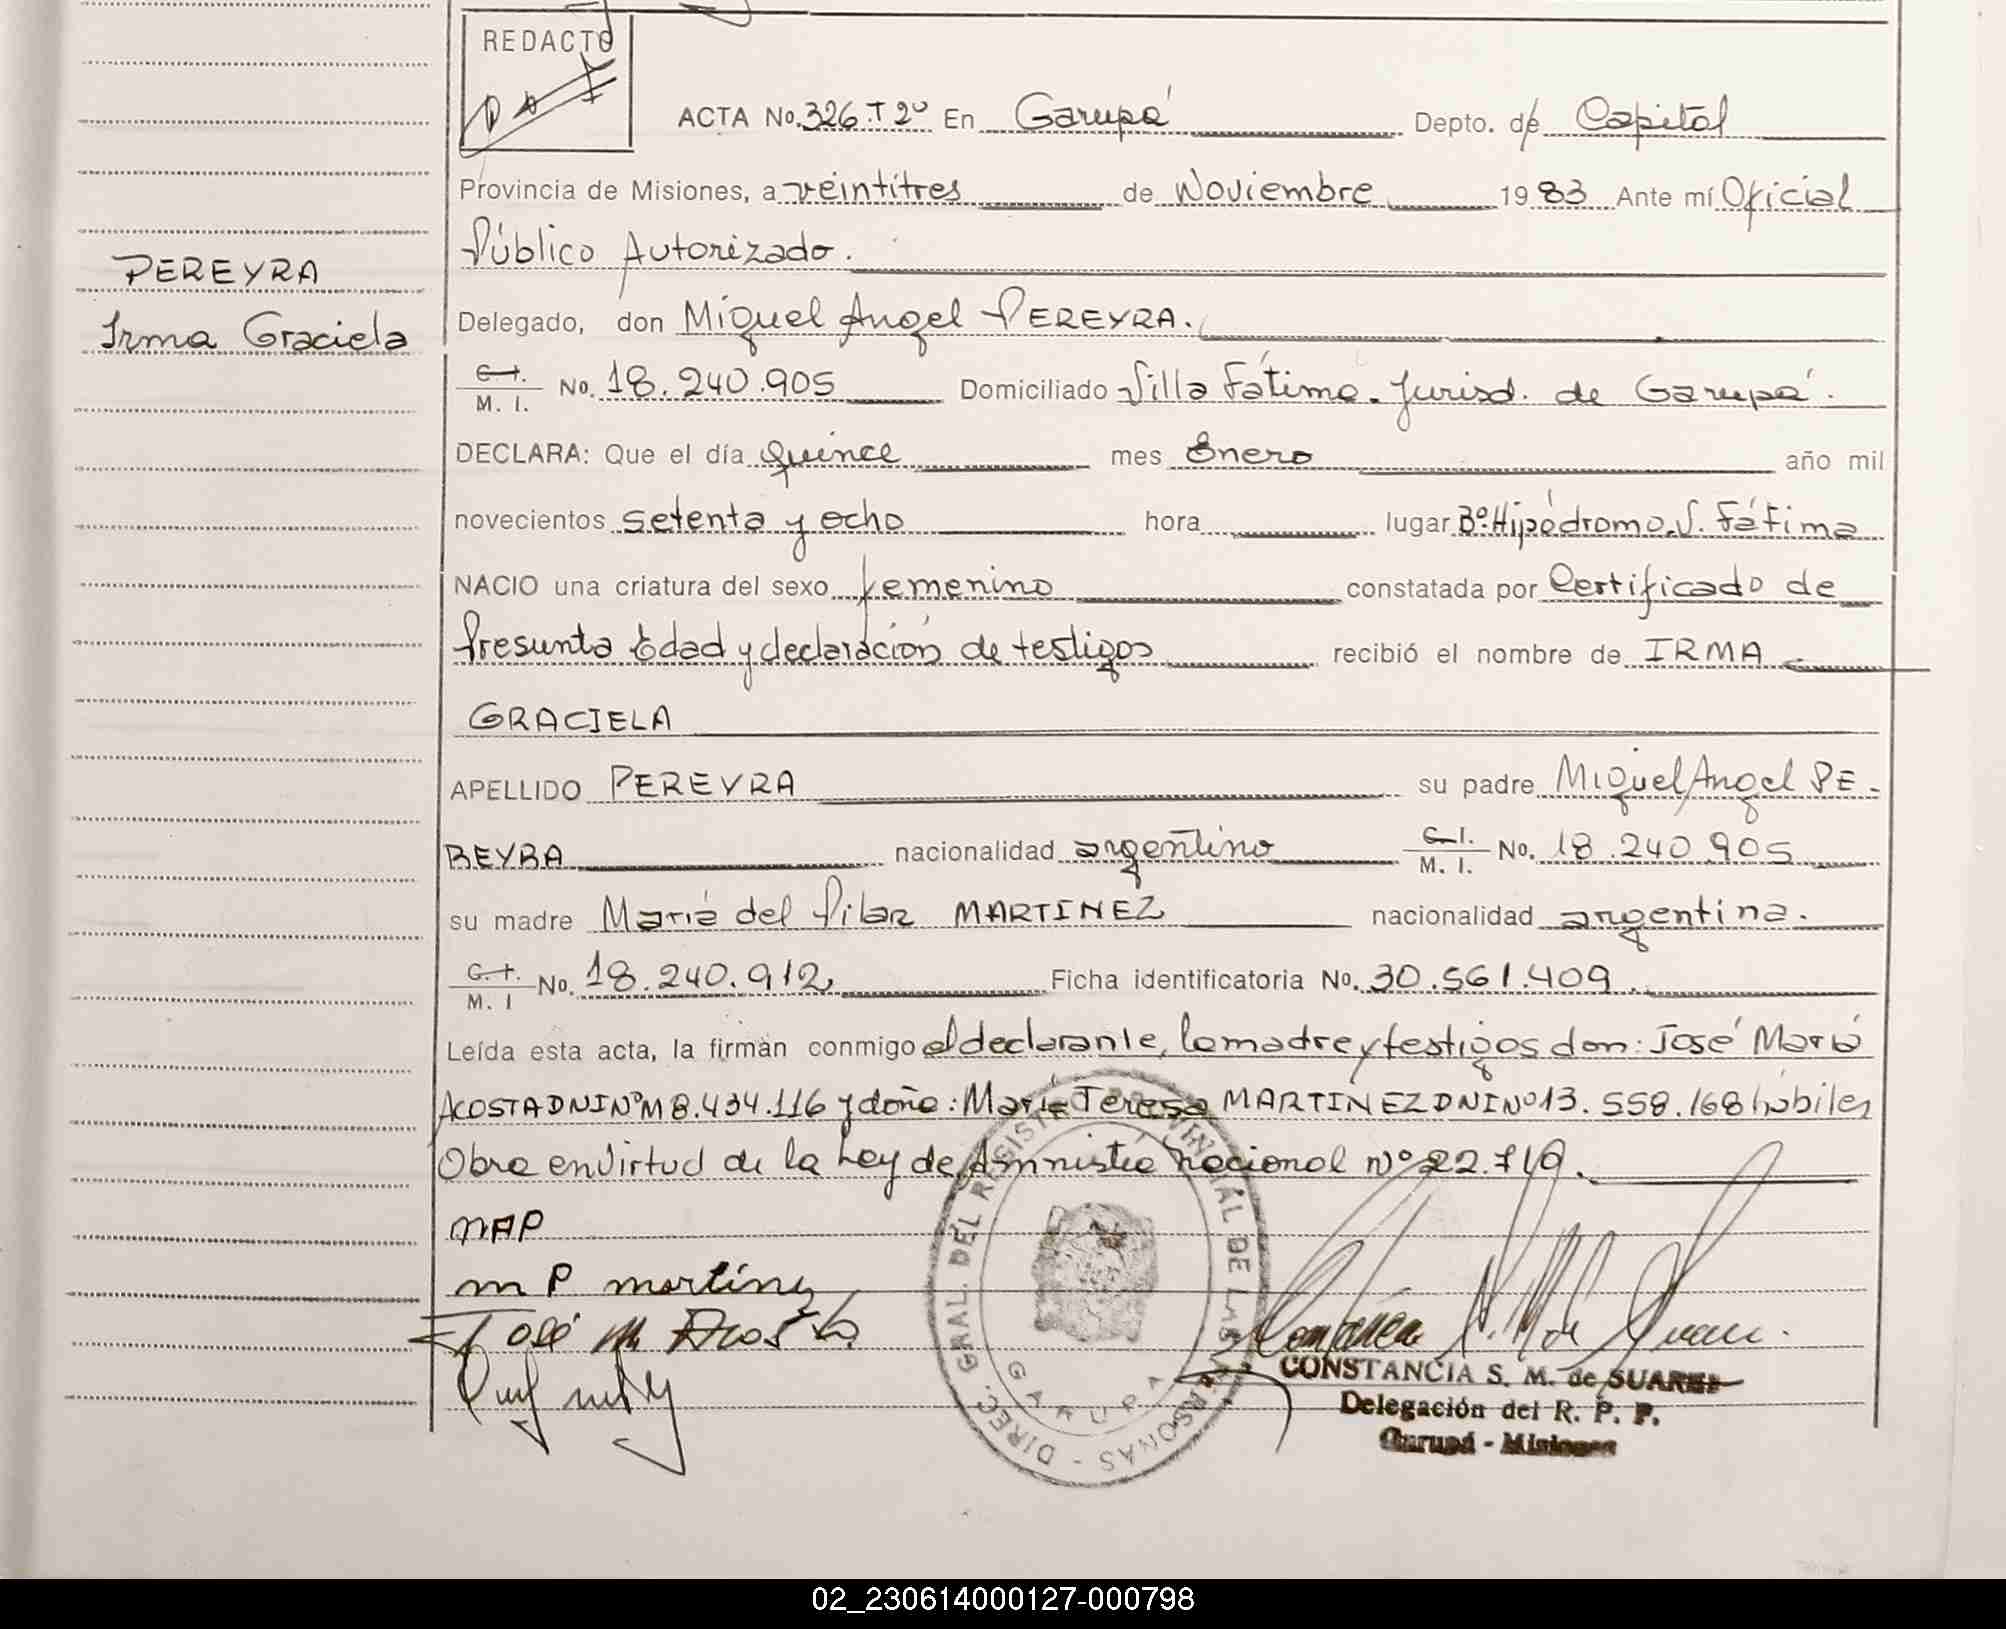 REDACTO
ACTA No. 326.T 2º En Garupá Depto. de Capital
Provincia de Misiones, a veintitres de Noviembre 1983 Ante mí Oficial
Público Autorizado.
PEREYRA
Irma Graciela
Delegado, don Miguel Angel PEREYRA.
C. I. M. I. No. 18.240.905 Domiciliado Villa Fátima. Jurisd. de Garupá.
DECLARA: Que el día quince mes Enero año mil
novecientos setenta y ocho hora lugar Bº.Hipódromo.V. Fátima
NACIO una criatura del sexo femenino constatada por Certificado de
Presunta Edad y declaración de testigos recibió el nombre de IRMA
GRACIELA
APELLIDO PEREYRA su padre Miguel Angel PE-
REYRA nacionalidad argentino C. I. M. I. No. 18.240.905
su madre María del Pilar MARTINEZ nacionalidad argentina.
C. I. M. I No. 18.240.912, Ficha identificatoria No. 30.561.409.
Leída esta acta, la firman conmigo el declarante, la madre y testigos don: José María
ACOSTA DNI Nº M 8.434.116 y doña: María Teresa MARTINEZ DNI Nº 13.558.168 hábiles
Obra en Virtud de la Ley de Amnistía Nacional Nº 22.719.
MAP
m P martinez
José M Acosta
DIREC. GRAL. DEL REGISTRO PROVINCIAL DE LAS PERSONAS -
GARUPA
CONSTANCIA S. M. de SUAREZ
Delegación del R. P. P.
Garupá - Misiones
02_230614000127-000798